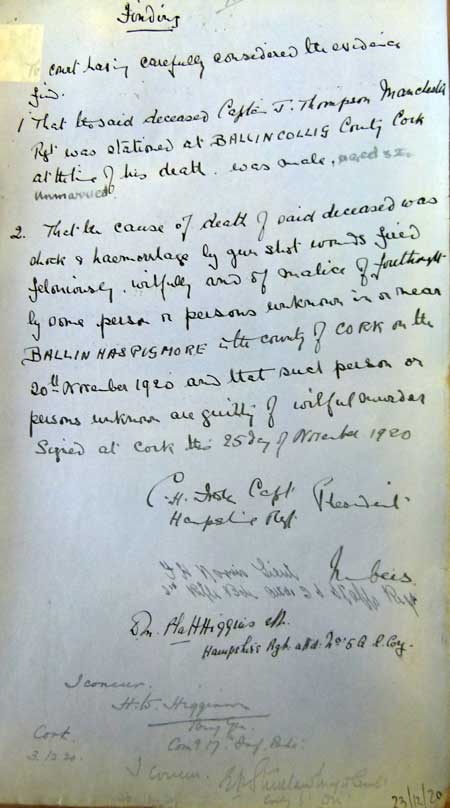 Finding
court having carefully considered the evidence
find.
1 That the said deceased Captain J. Thompson Manchester
Rgt was stationed at BALLINCOLLIG County Cork
at the time of his death. was male, aged
unmarried.
2. That the cause of death of said deceased was
shock & haemorrhage by gun shot wounds fired
feloniously, wilfully and of malice of forethought
by some person or persons unknown in or near
BALLINHASPIGMORE in the county of CORK on the
20th November 1920 and that such person or
persons unknown are guilty of wilful murder
Signed at Cork this 25 day of November 1920
Capt President
Hampshire Regt.
Lieut Members
Regt
Higgins
Hampshire Rgt. attd. No: 5
I concur.
H. W. Higginson
Cork
3.12.20.
I concur.
23/12/20